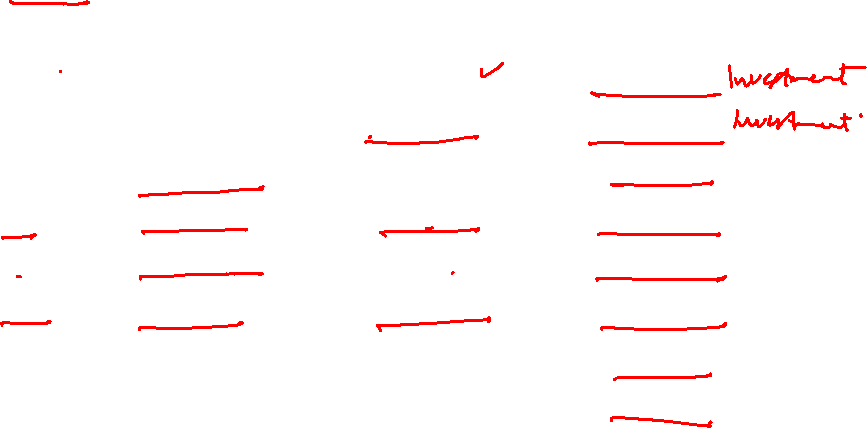 Investment
Investment